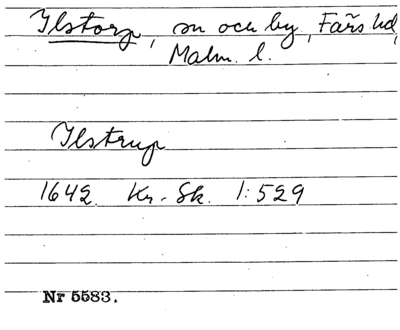 Ilstorp, sn och by, Färs hd,
Malm. l.
Ilstrup
1642. Kr. Sk. 1:529
Nr 5583.